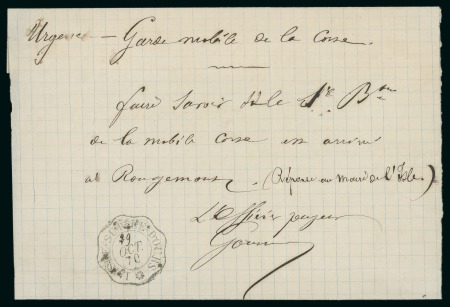 Urgence — Garde mobile de la Corse.
faire savoir si le 1er Bon
de la mobile Corse est arrivé
à Rougemont. (Réponse au maire de l'Isle)
L'officier payeur
29
OCT.
70